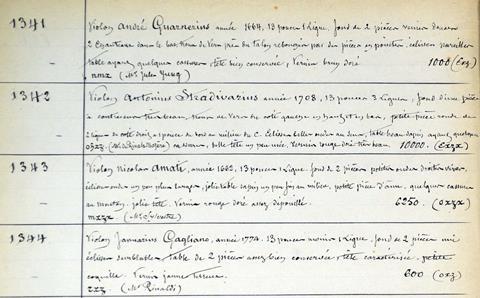 1341 Violon André Guarnerius année 1664, 13 pouces 1 ligne. fond de 2 pièces vernis
2 dans le bas, trou de Ver près du talon rebouché par des pièces en pointes, éclisses pareilles
table ayant quelques cassures tête bien conservée, Vernis brun doré 1000 (Exz)
nmz (Mr Jules
1342 Violon Antonius Stradivarius année 1708, 13 pouces 3 lignes, fond d'une pièce
à trous de Ver du coté gauche en haut et en bas, petite pièce ronde de
2 lignes du coté droit, à pouce du bord au milieu du C. Éclisses belles ordre au dessus, table beau sapin ayant quelques
ohzx. cassures, belle tête un peu usée, Vernis rouge doré très beau 10000. (Exzx)
1343 Violon Nicolas Amati, année 1662, 13 pouces 1 ligne. fond de 2 pièces, petites ondes droites vives,
éclisses ondes un peu plus larges, jolie table sapin un peu fin au milieu, petite pièce d'âme, quelques cassures
au menton, jolie tête. Vernis rouge doré assez dépouillé. 6250. (oxzx)
mxzx (Mr
1344 Violon Januarius Gagliano, année 1774. 13 pouces moins 1 ligne. fond de 2 pièces uni
éclisses semblables. table de 2 pièces assez bien conservée, tête caractérisée. petite
coquille. Vernis jaune terreux. 600 (oxz)
zxz (Mr Rinaldi)